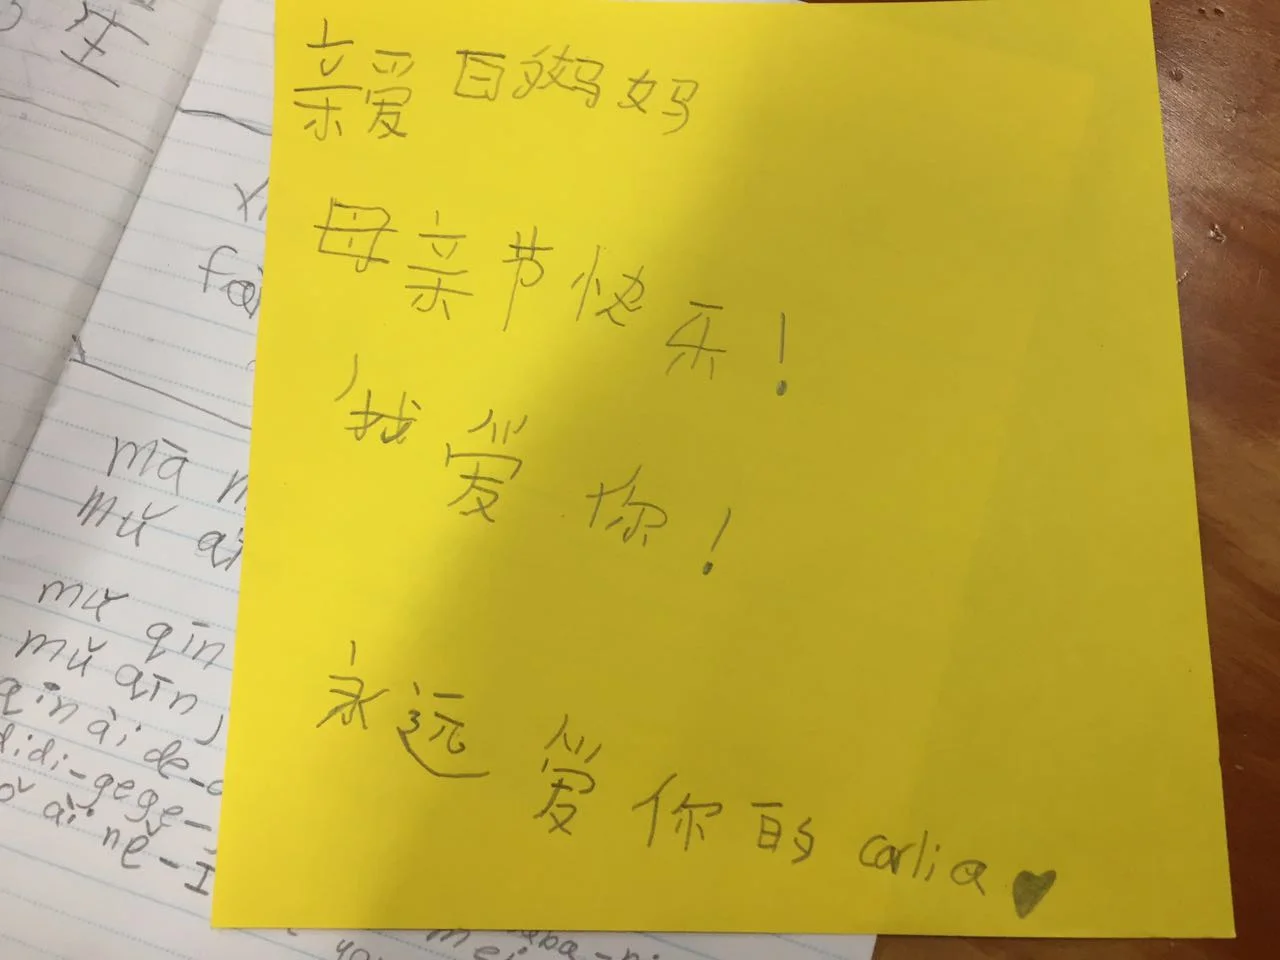 生
亲爱的妈妈
母亲节快乐!
我爱你!
永远爱你的 carlia
mā
mǔ
mǔ qīn
mǔ qīn,
qīn ài de-
didi-gege-
ài nǐ-I